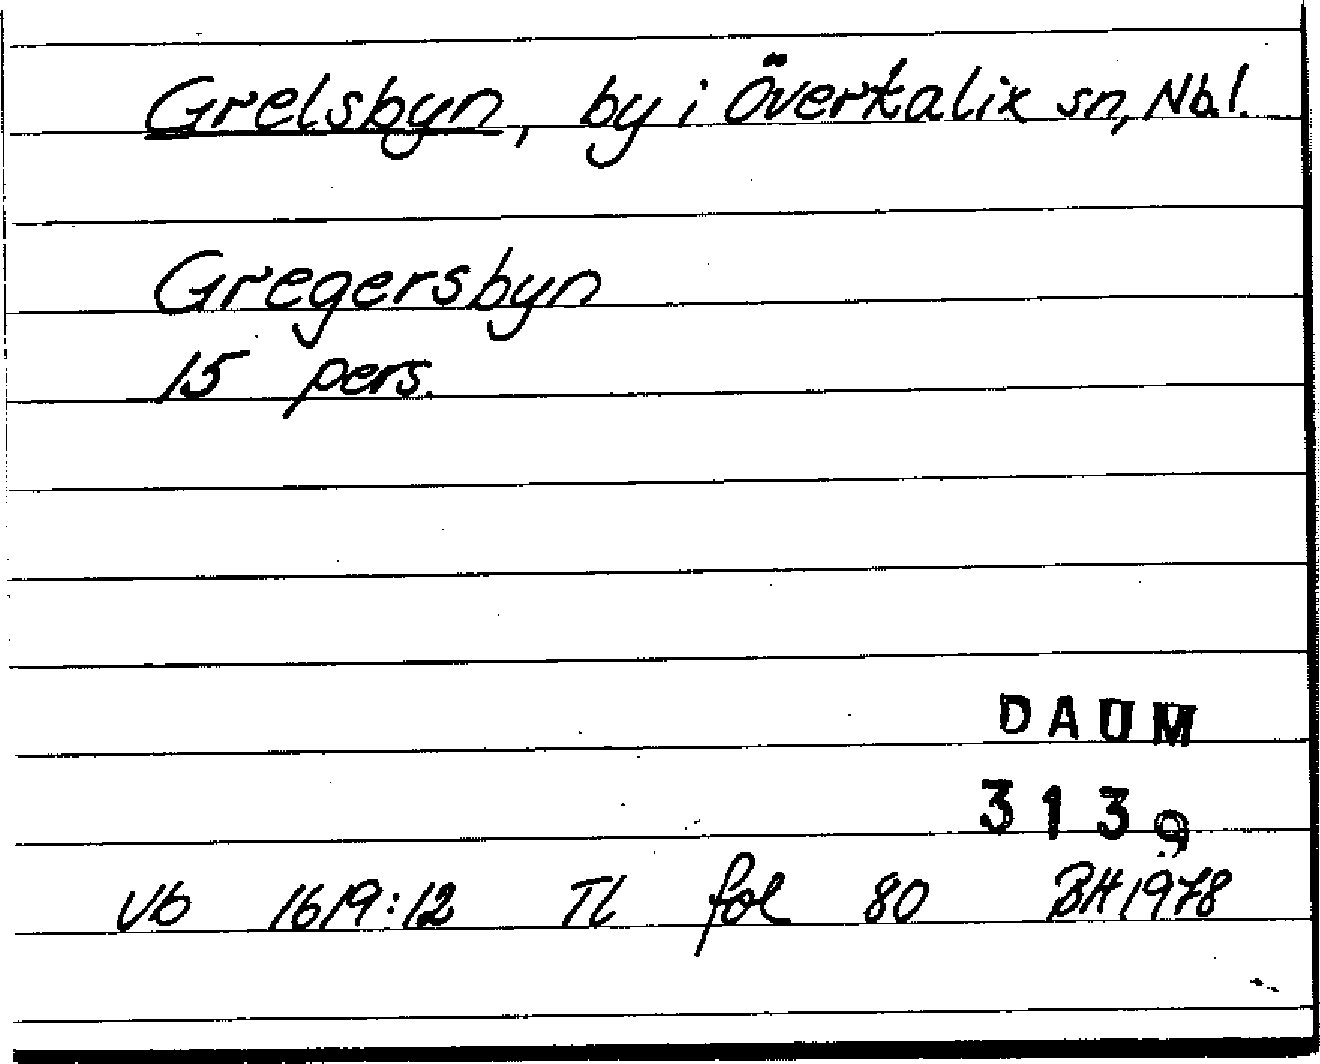 Grelsbyn, by i Överkalix sn, Nb.l.
Gregersbyn
15 pers.
DAUM
3139
Vb 1619:12 TL fol 80 BH 1978